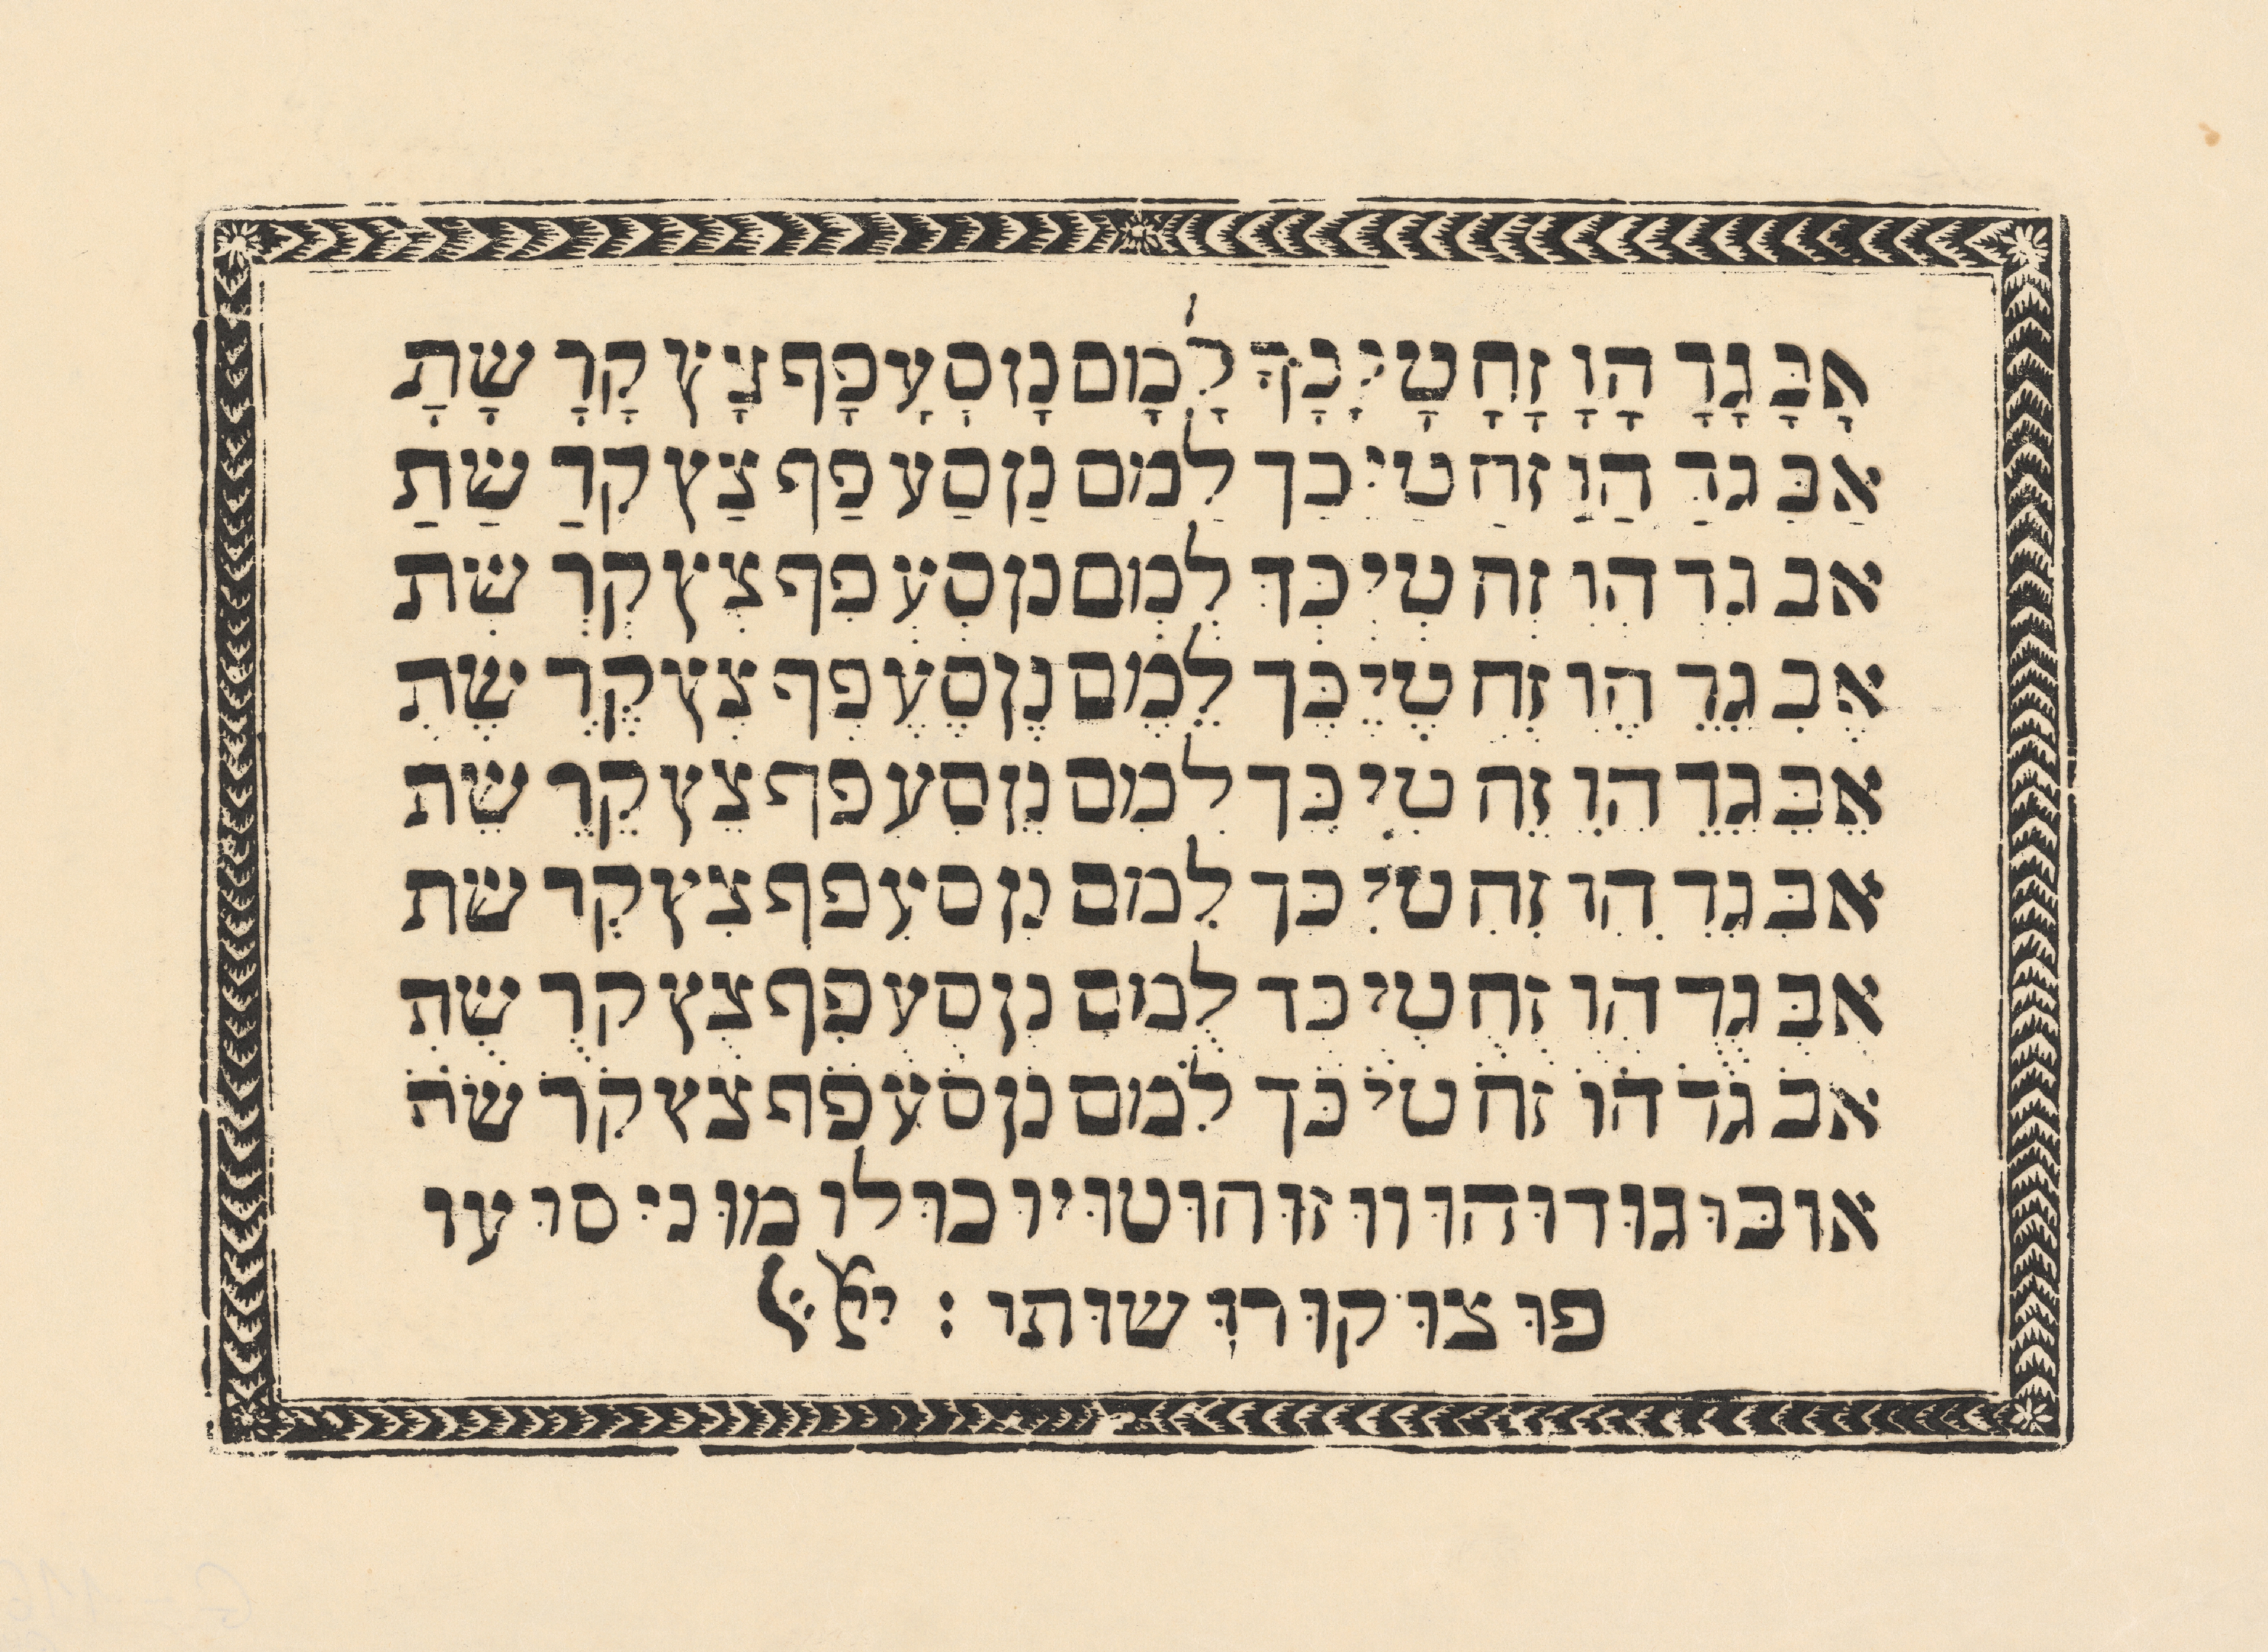 אָבָּ גָדָ הָוָ זָחָ טָיָ כָךָ לָמָם נָן סָעָ פָף צָץ קָרָ שָתָ
אַבַּ גַדַ הַוַ זַחַ טַיַ כַּךַ לַמַם נַן סַעַ פַף צַץ קַרַ שַׁתַ
אְבְ גְדְ הְוְ זְחְ טְיְ כְּךְ לְמְם נְן סְעְ פְף צְץ קְרְ שְתְ
אֶבֶ גֶדֶ הֶוֶ זֶחֶ טֶיֶ כֶּךֶ לֶמֶם נֶן סֶעֶ פֶף צֶץ קֶרֶ שֶתֶ
אֵבֵּ גֵדֵ הֵוֵ זֵחֵ טֵיֵ כֵּךֵ לֵמֵם נֵן סֵעֵ פֵף צֵץ קֵרֵ שֵתֵ
אִבִּ גִדִ הִוִ זִחִ טִיִ כִּךִ לִמִם נִן סִעִ פִף צִץ קִרִ שִתִ
אֻבֻּ גֻדֻ הֻוֻ זֻחֻ טֻיֻ כֻּךֻ לֻמֻם נֻן סֻעֻ פֻף צֻץ קֻרֻ שֻתֻ
אֹבֹ גֹדֹ הֹוֹ זֹחֹ טֹיֹ כֹּךֹ לֹמֹם נֹן סֹעֹ פֹף צֹץ קֹרֹ שֹתֹ
אוּ בּוּ גוּ דוּ הוּ ווּ זוּ חוּ טוּ יוּ כוּ לוּ מוּ ני סוּ עוּ
פוּ צוּ קוּ רוּ שוּ תוּ :